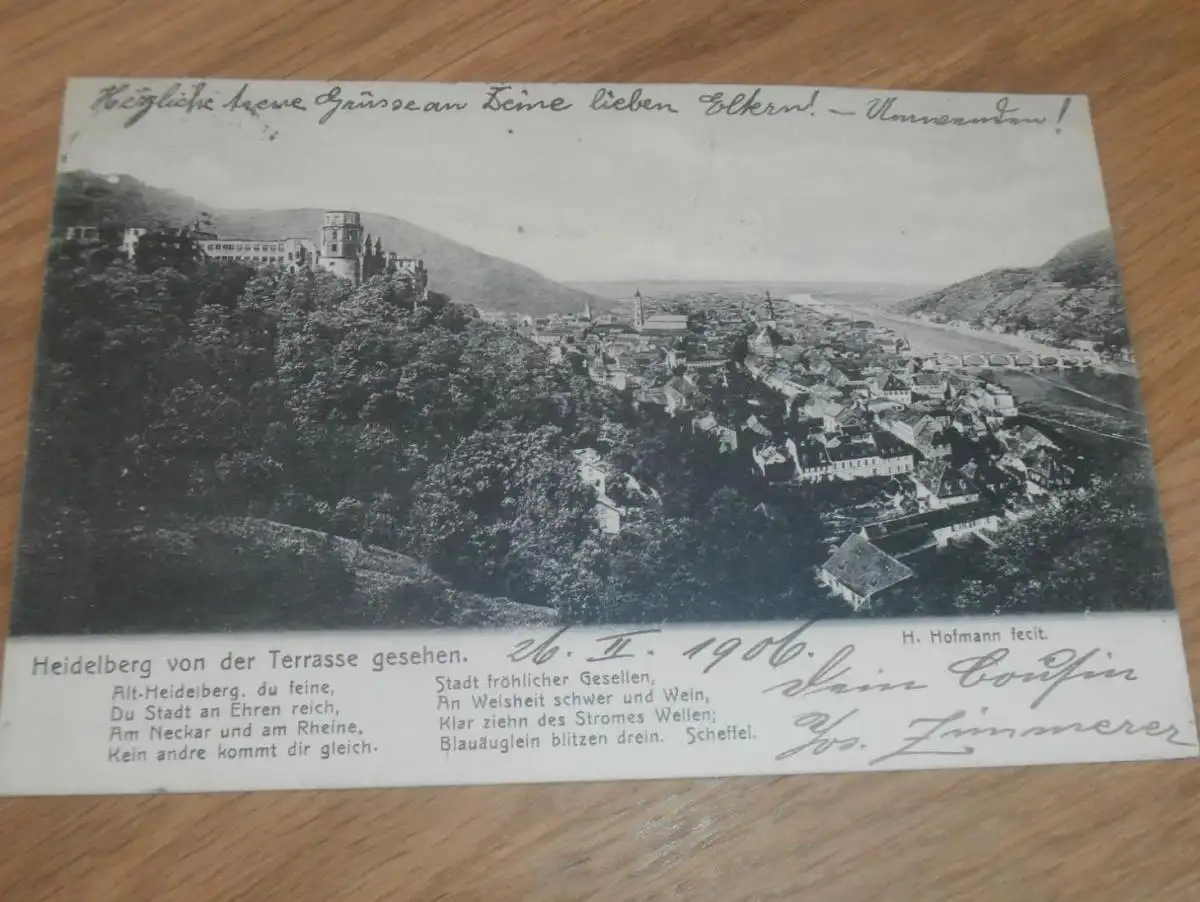 Herzliche treue Grüsse an Deine lieben Eltern! – Umwenden!
H. Hofmann fecit.
Heidelberg von der Terrasse gesehen.
26. II. 1906.
Alt-Heidelberg, du feine,
Du Stadt an Ehren reich,
Am Neckar und am Rheine,
Kein andre kommt dir gleich.
Stadt fröhlicher Gesellen,
An Weisheit schwer und Wein,
Klar ziehn des Stromes Wellen;
Blauäuglein blitzen drein. Scheffel.
Dein Cousin
Jos. Zimmerer